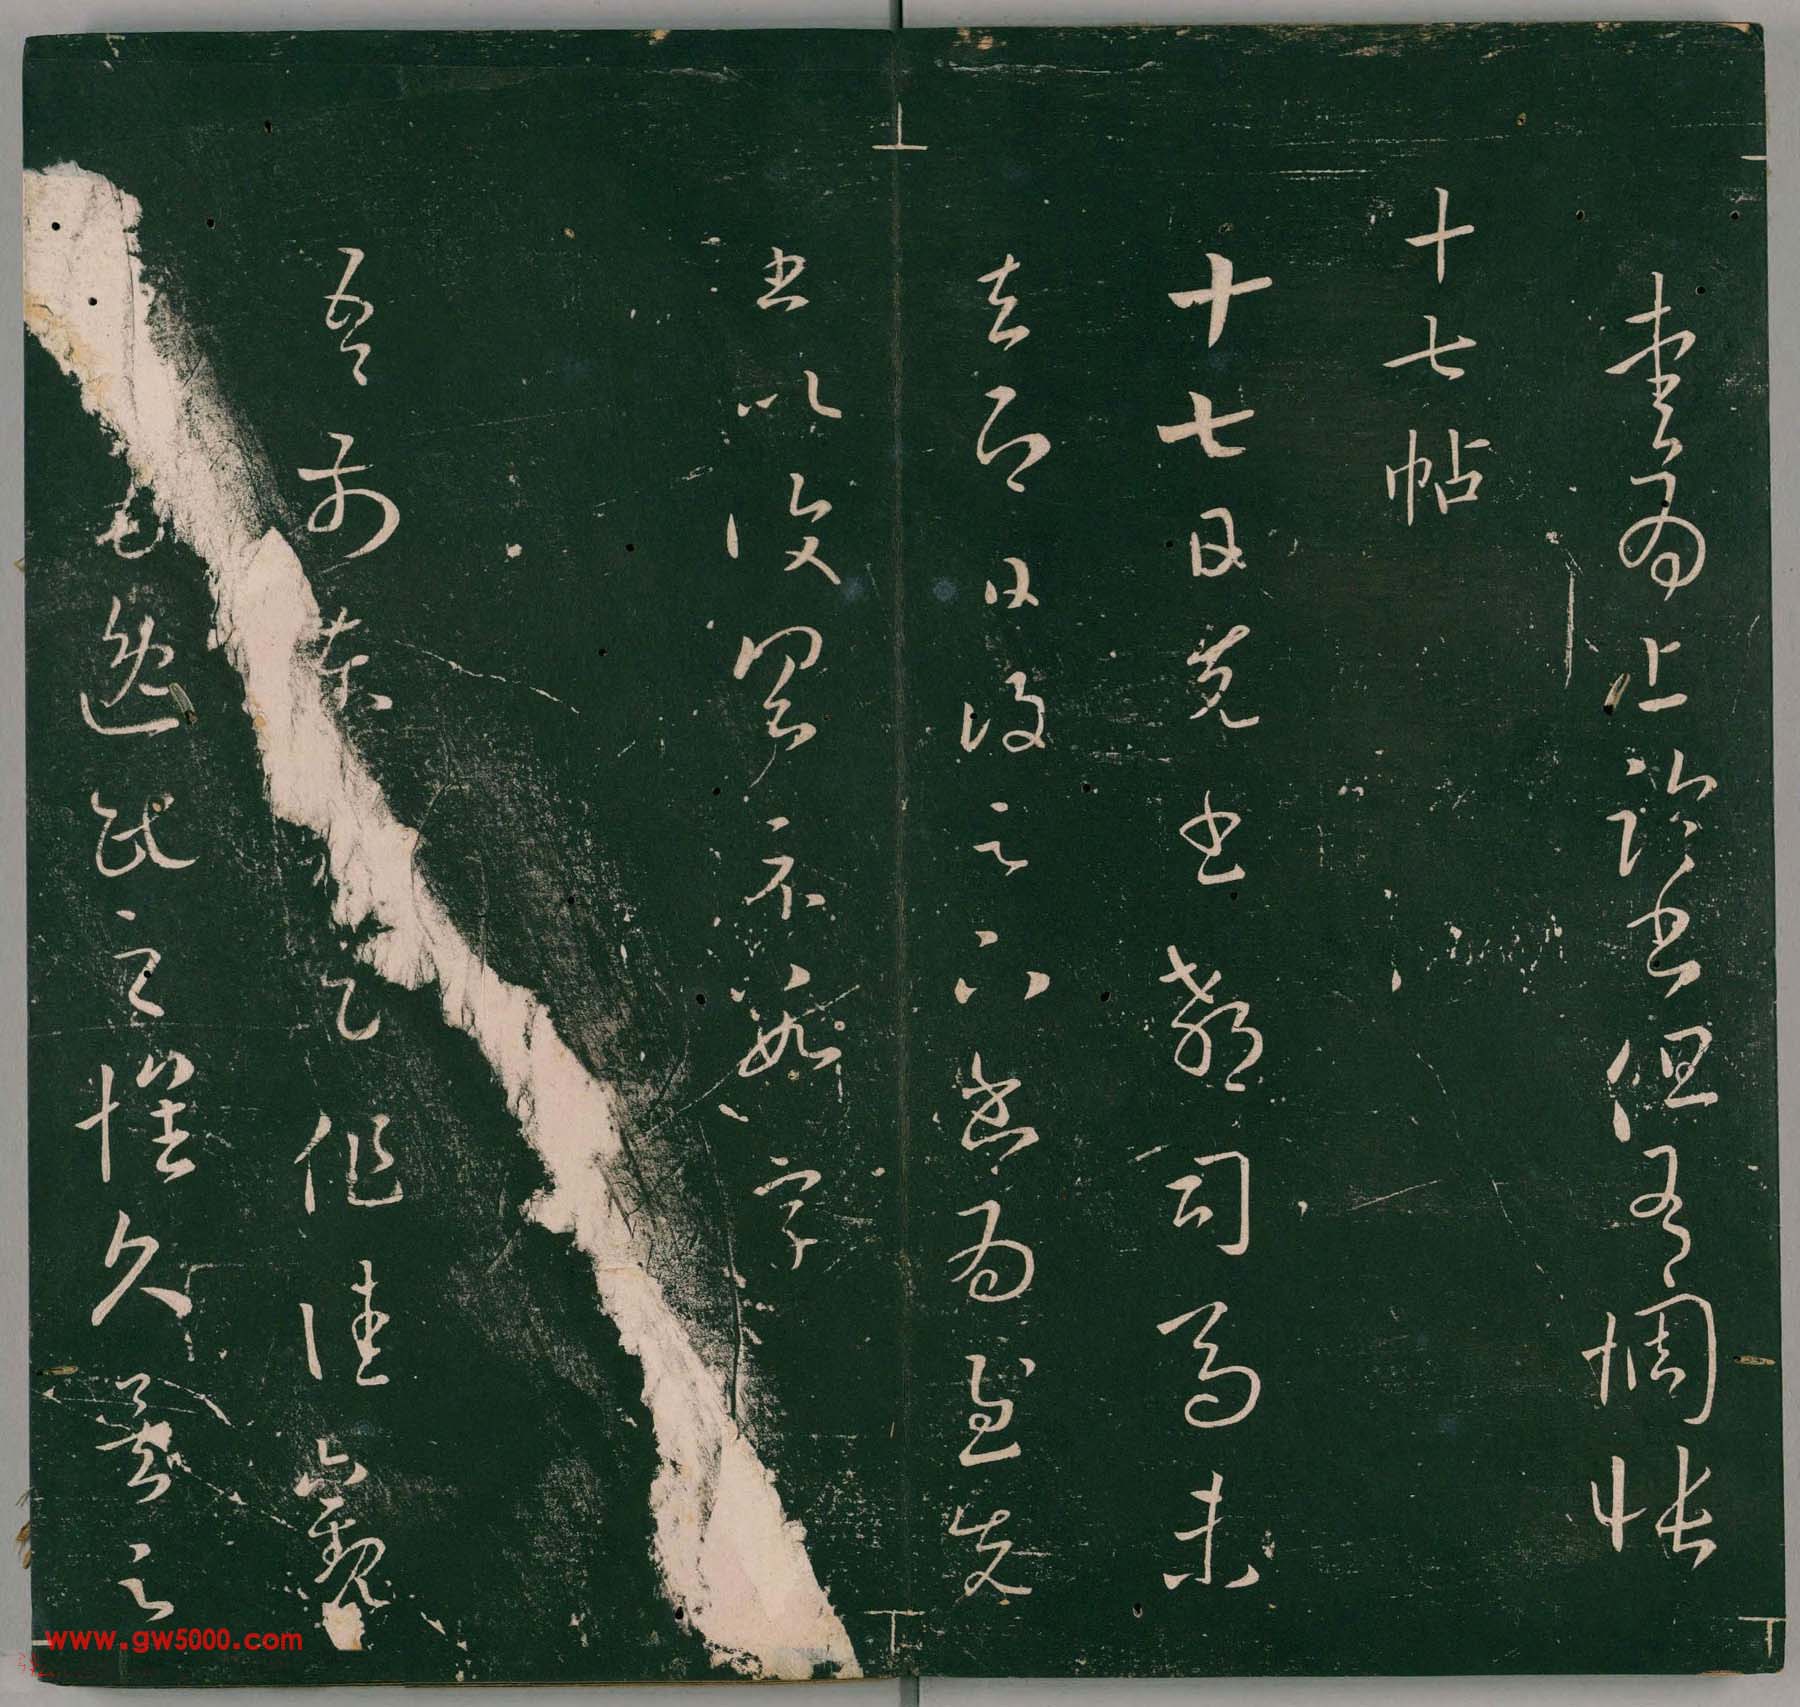 愛為上臨書但有惆悵
十七帖
十七日先書郗司馬未
去即日得足下書為慰先
書以復具示數字
吾前東足作佳觀
為逸民之懷久矣足
www.gw5000.com